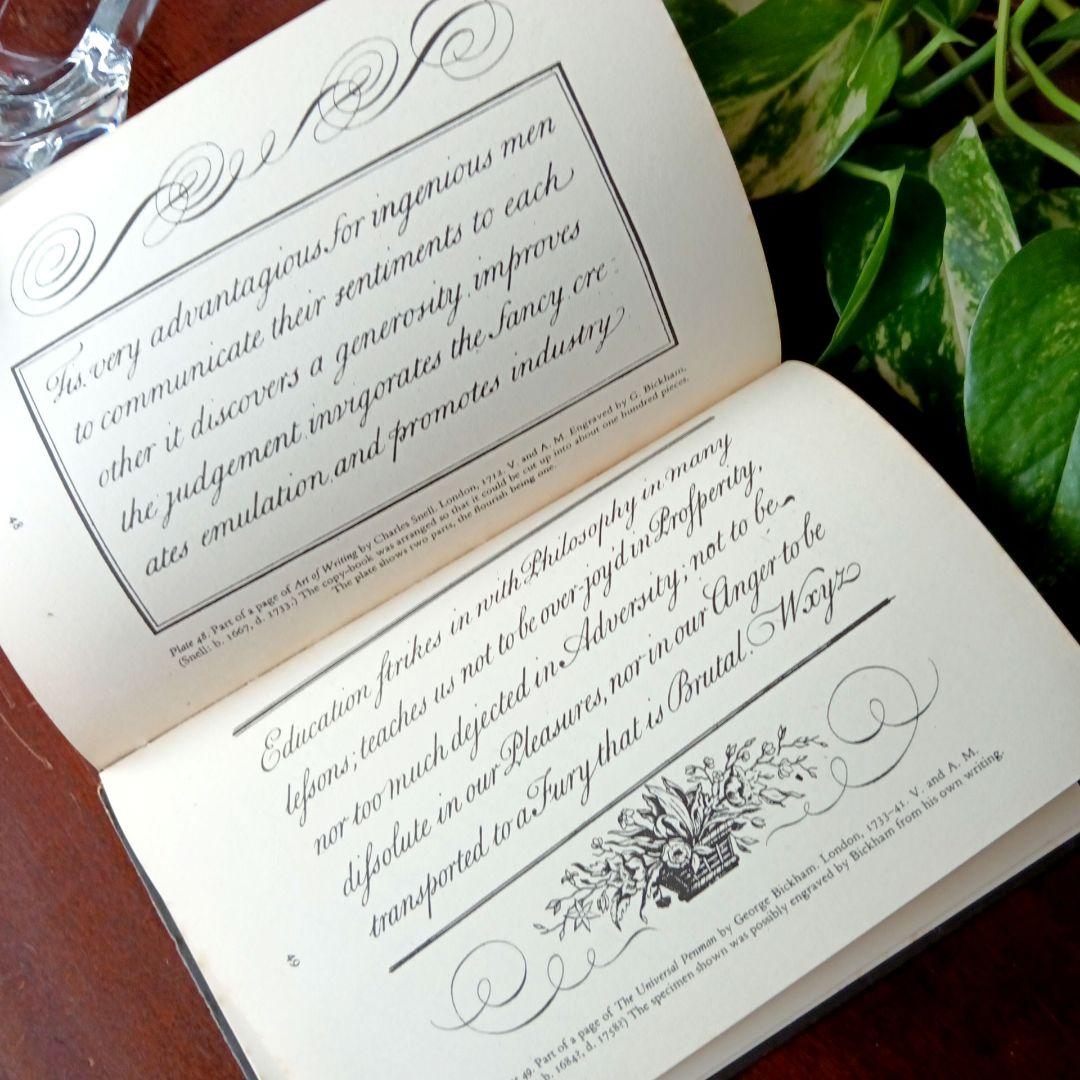 Tis very advantagious for ingenious men
to communicate their sentiments to each
other it discovers a generosity improves
the judgement invigorates the fancy cre-
ates emulation and promotes industry
Plate 48. Part of a page of Art of Writing by Charles Snell. London, 1712. V. and A. M. Engraved by G. Bickham.
(Snell: b. 1667, d. 1733.) The copy-book was arranged so that it could be cut up into about one hundred pieces.
The plate shows two parts, the flourish being one.
48
Education ſtrikes in with Philosophy in many
leſsons; teaches us not to be over-joy'd in Proſperity,
nor too much dejected in Adversity; not to be
diſsolute in our Pleasures, nor in our Anger to be
transported to a Fury that is Brutal. Wxyz
49. Part of a page of The Universal Penman by George Bickham. London, 1733-41. V. and A. M.
b. 1684?, d. 1758?) The specimen shown was possibly engraved by Bickham from his own writing.
49